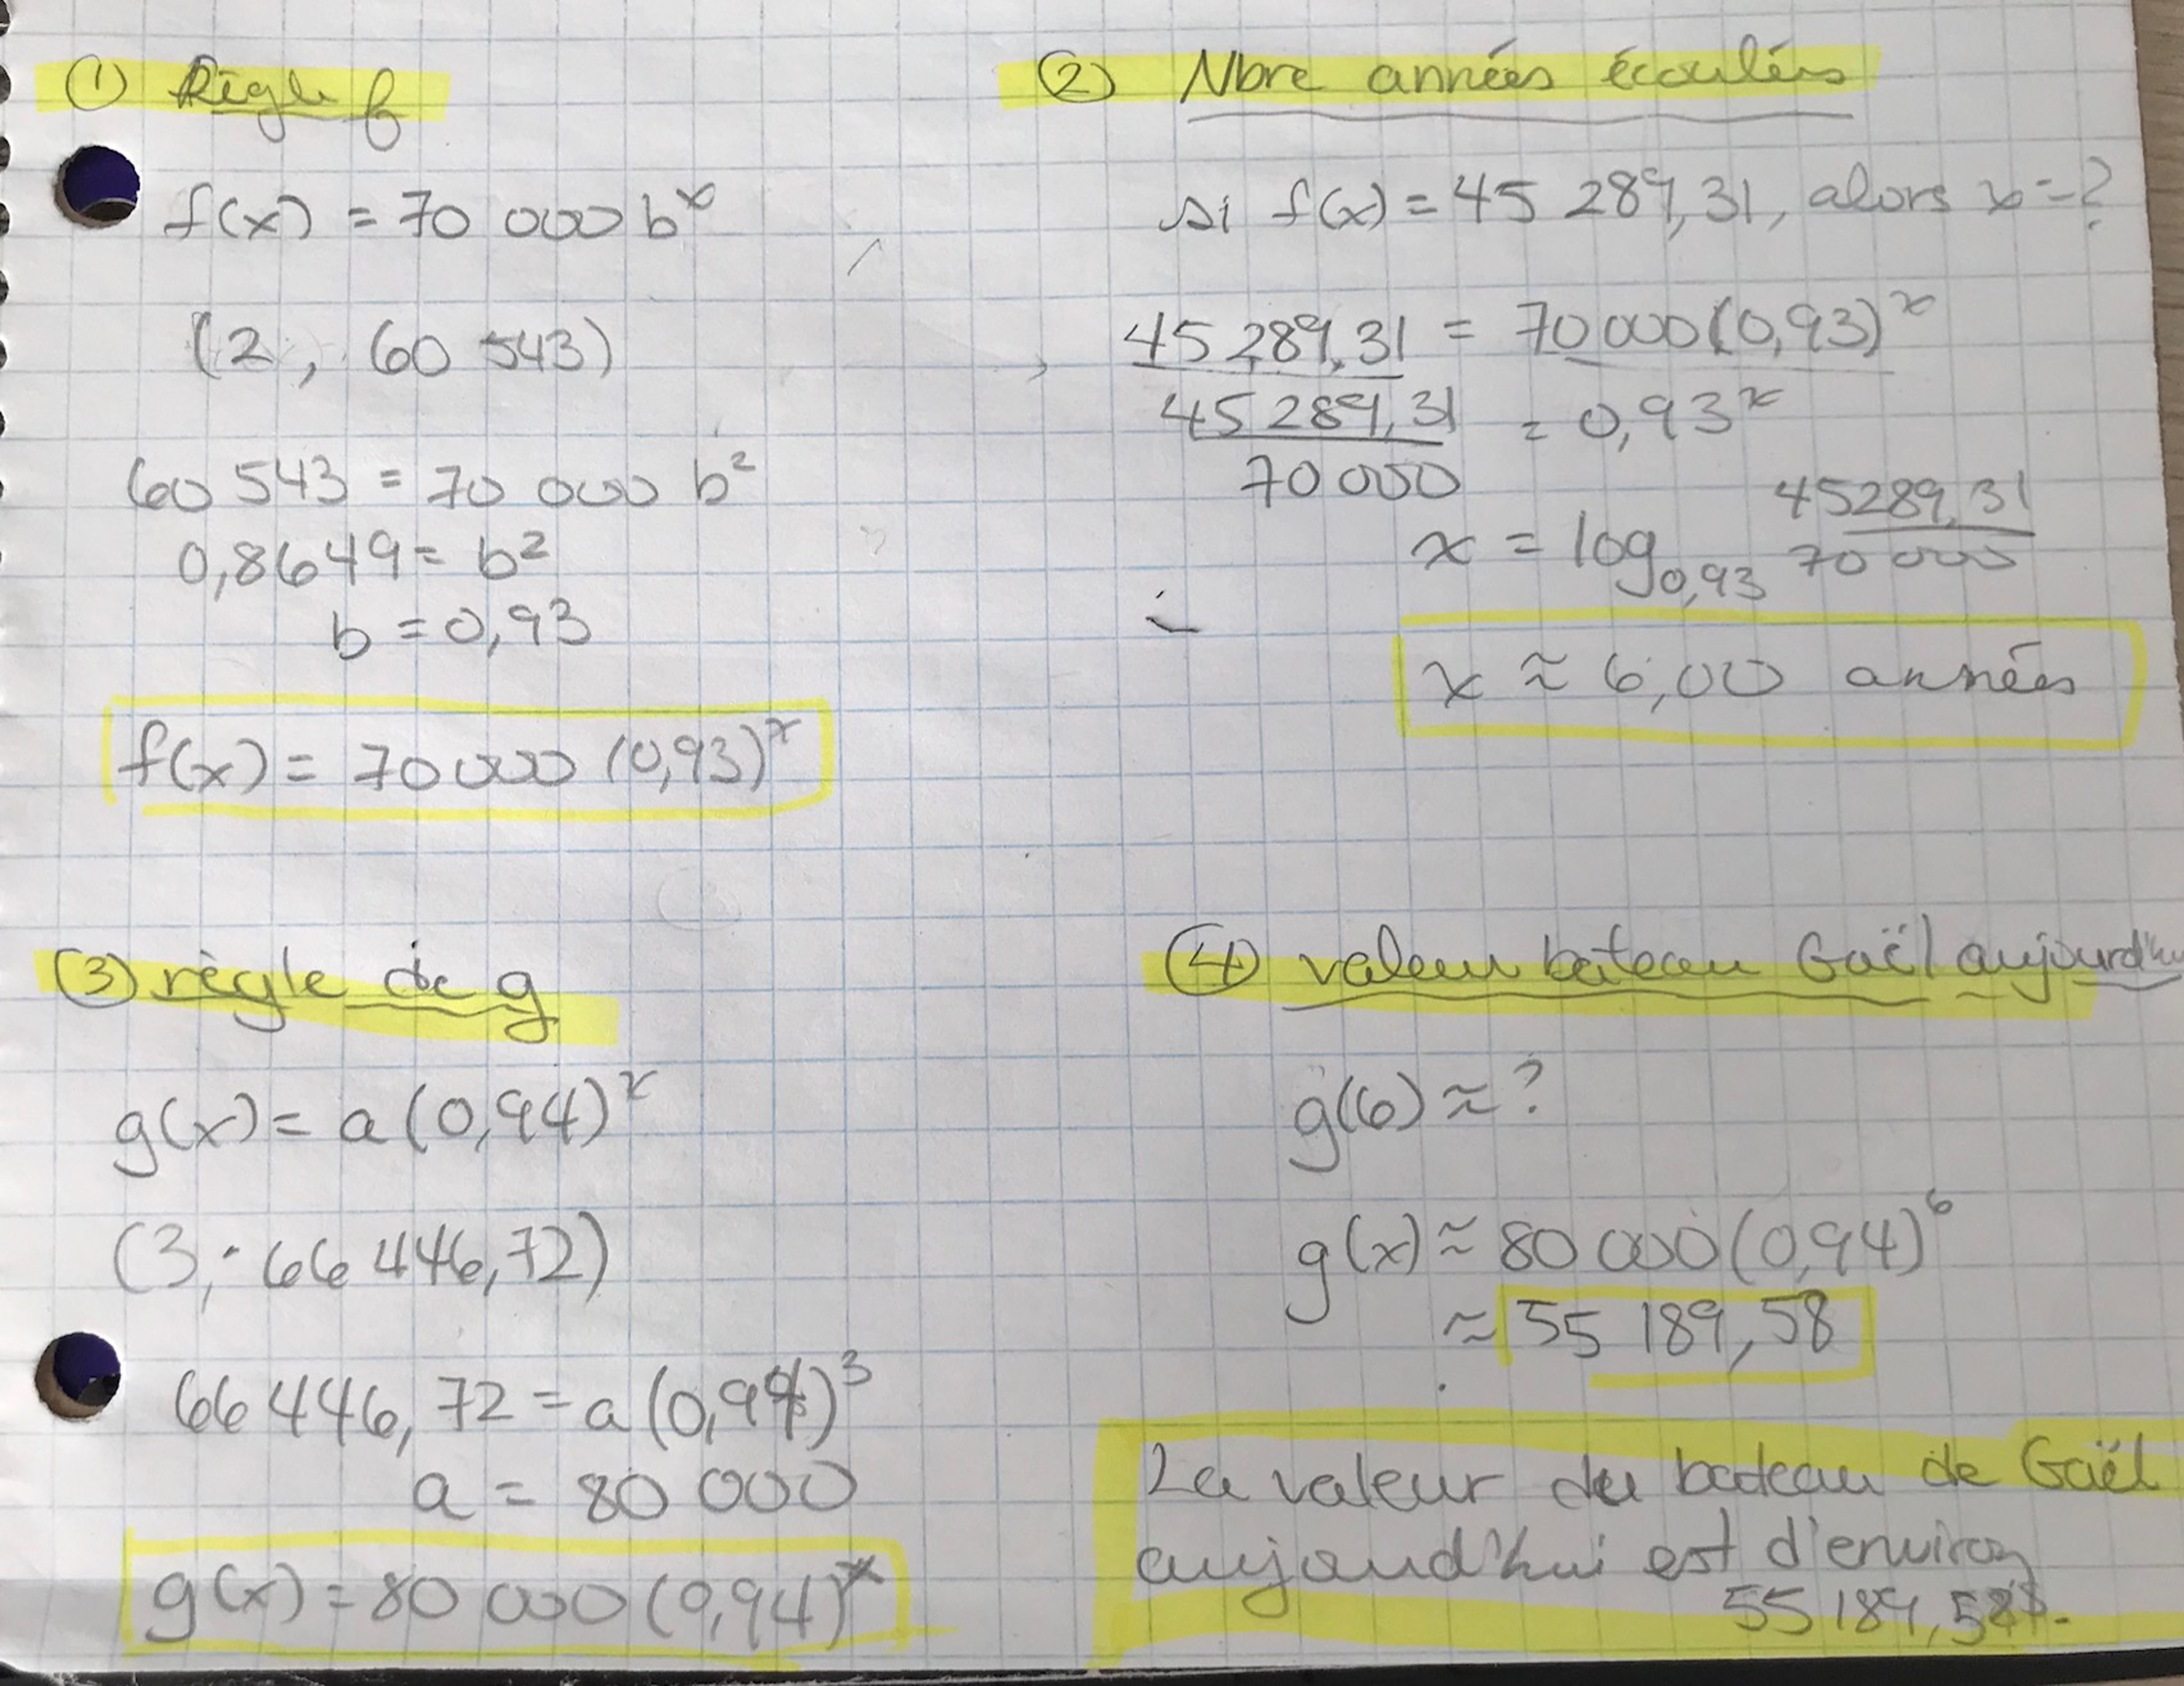 ① Règle f
f(x) = 70 000 b^x
(2, 60 543)
60 543 = 70 000 b²
0,8649 = b²
b = 0,93
f(x) = 70 000 (0,93)^x
② Nbre années écoulées
si f(x) = 45 289,31, alors x = ?
45 289,31 = 70 000 (0,93)^x
45 289,31 = 0,93^x
70 000
x = log 0,93 45289,31
70 000
x ≈ 6,00 années
③ règle de g
g(x) = a (0,94)^x
(3, 66 446,72)
66 446,72 = a (0,94)³
a = 80 000
g(x) = 80 000 (0,94)^x
④ valeur bateau Gaël aujourd'hui
g(6) ≈ ?
g(x) ≈ 80 000 (0,94)⁶
≈ 55 189,58
La valeur du bateau de Gaël
aujourd'hui est d'environ
55 189,58$.